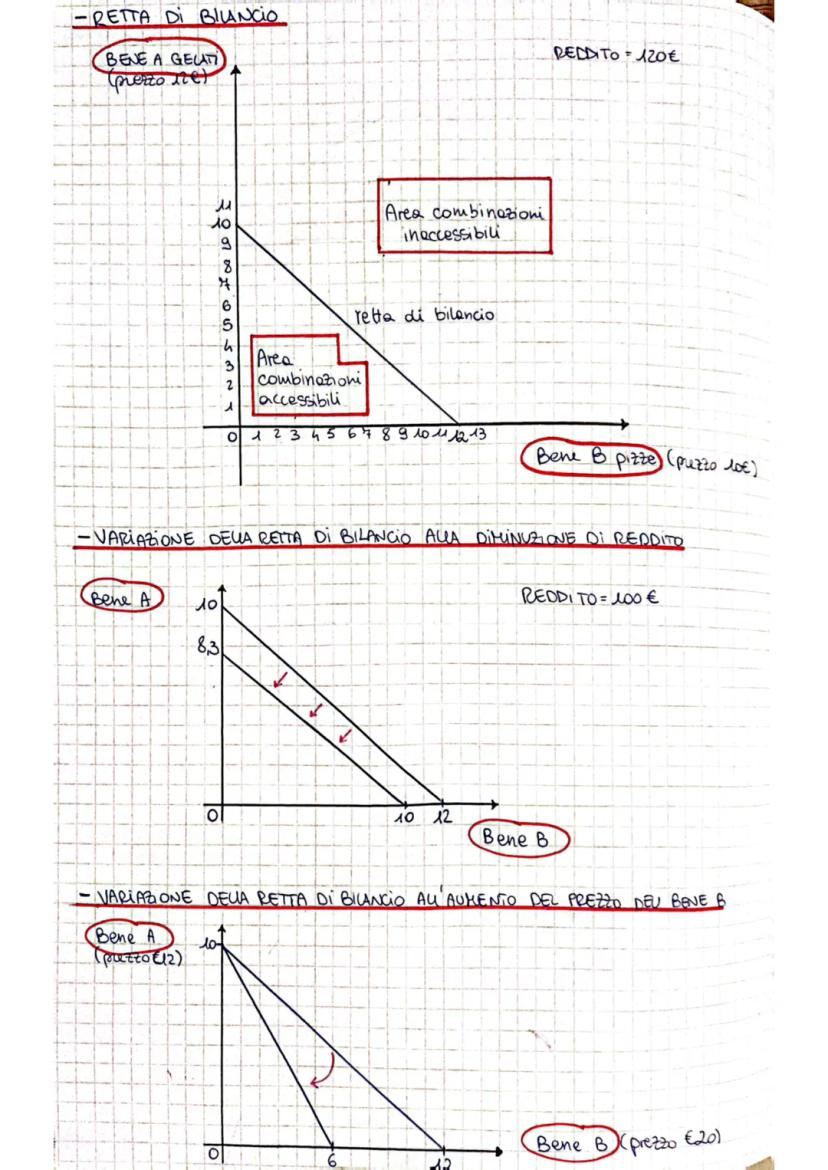 - RETTA Di BILANCIO
BENE A GELATI
(prezzo 12€)
REDDITO = 120€
11
10
9
8
7
6
5
4
3
2
1
Area combinazioni
inaccessibili
retta di bilancio
Area
combinazioni
accessibili
0 1 2 3 4 5 6 7 8 9 10 11 12 13
Bene B pizze (prezzo 10€)
- VARIAZIONE DELLA RETTA Di BILANCIO ALLA DIMINUZIONE DI REDDITO
Bene A
REDDITO = 100 €
10
8,3
0 10 12
Bene B
- VARIAZIONE DELLA RETTA Di BILANCIO ALL'AUMENTO DEL PREZZO DEL BENE B
Bene A
(prezzo €12)
10
0 6 12
Bene B (prezzo €20)